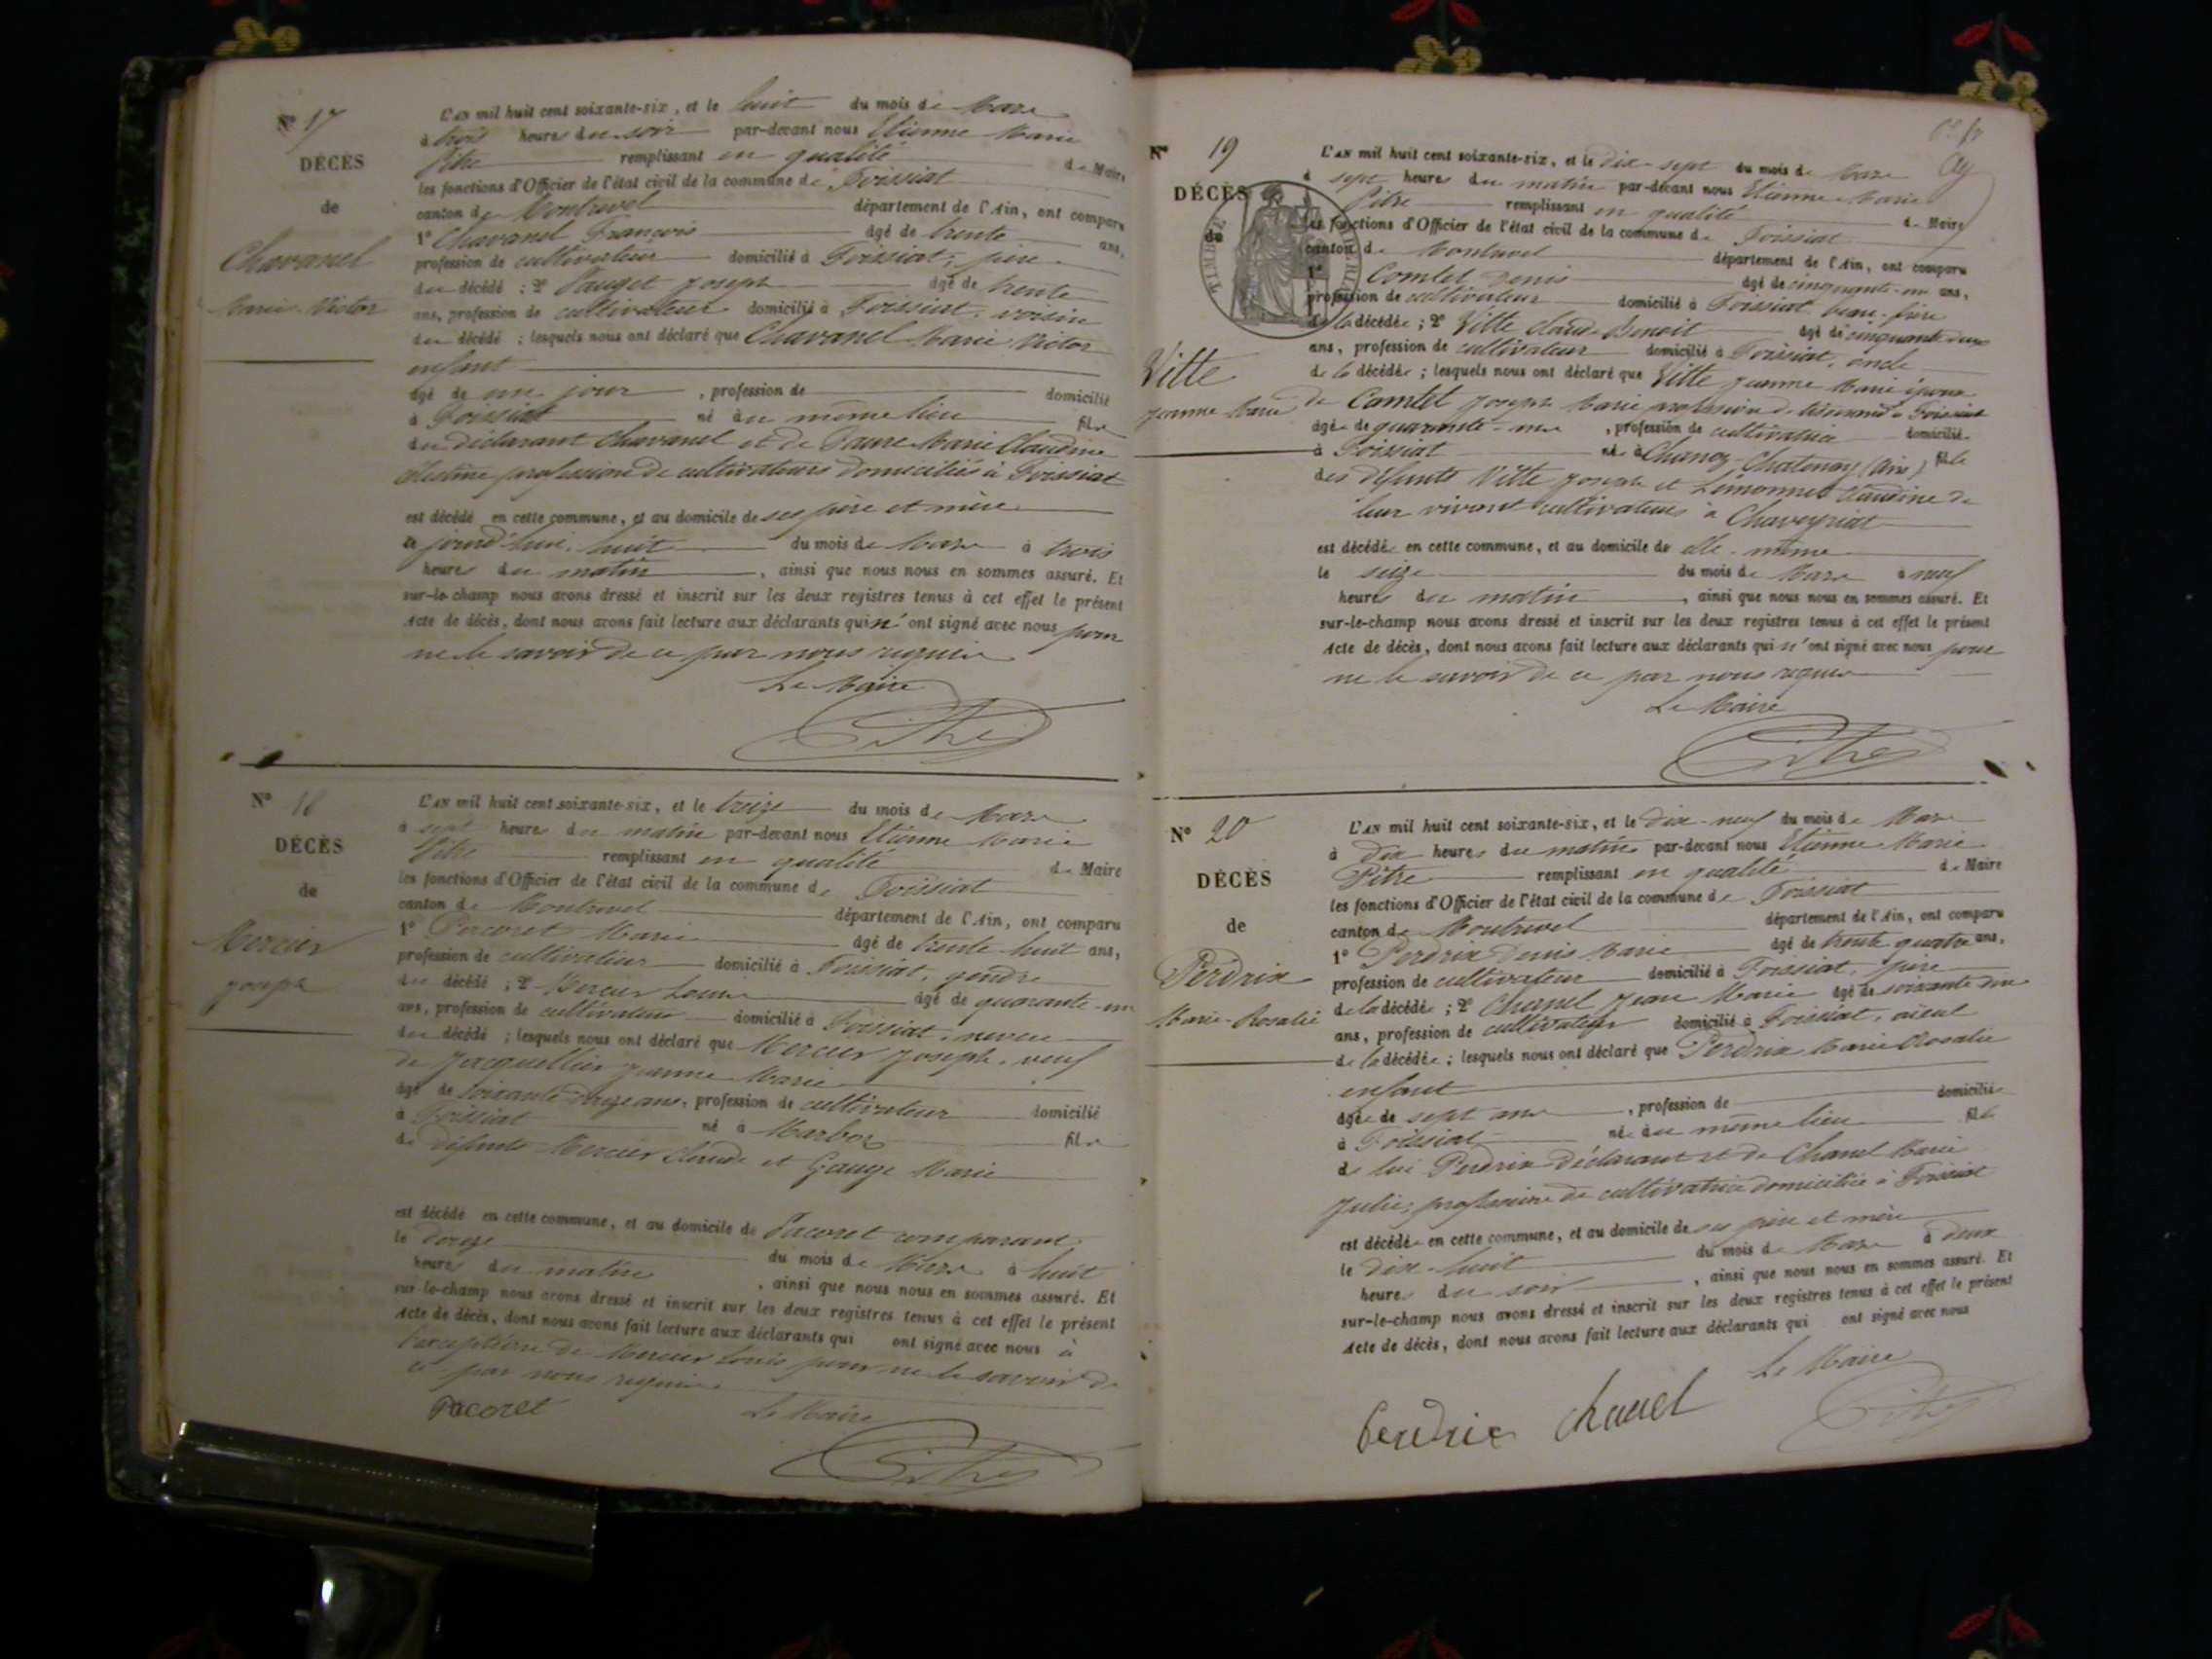 Nº 17
DÉCÈS
de
Chavanel
Marie Victor
L'AN mil huit cent soixante-six, et le huit du mois de Mars
à trois heures du soir par-devant nous Etienne Marie
Pitre remplissant en qualité de Maire
les fonctions d'Officier de l'état civil de la commune de Foissiat
canton de Montrevel département de l'Ain, ont comparu
1º Chavanel François âgé de trente ans,
profession de cultivateur domicilié à Foissiat, père
du décédé ; 2º Pauget Joseph âgé de trente
ans, profession de cultivateur domicilié à Foissiat, voisin
du décédé ; lesquels nous ont déclaré que Chavanel Marie Victor
enfant
âgé de un jour , profession de domicilié
à Foissiat né au même lieu fils
du déclarant Chavanel et de Marie Claudine
profession de cultivateurs domiciliés à Foissiat
est décédé en cette commune, et au domicile de ses père et mère
jourd'hui huit du mois de Mars à trois
heures du matin , ainsi que nous nous en sommes assuré. Et
sur-le-champ nous avons dressé et inscrit sur les deux registres tenus à cet effet le présent
Acte de décès, dont nous avons fait lecture aux déclarants qui n'ont signé avec nous pour
ne le savoir de ce par nous requis
Le Maire
Pitre
Nº 18
DÉCÈS
de
Mercier
Joseph
L'AN mil huit cent soixante-six, et le treize du mois de Mars
à sept heures du matin par-devant nous Etienne Marie
Pitre remplissant en qualité de Maire
les fonctions d'Officier de l'état civil de la commune de Foissiat
canton de Montrevel département de l'Ain, ont comparu
1º Pacoret Marie âgé de trente huit ans,
profession de cultivateur domicilié à Foissiat, gendre
du décédé ; 2º Mercier Louis âgé de quarante-un
ans, profession de cultivateur domicilié à Foissiat, neveu
du décédé ; lesquels nous ont déclaré que Mercier Joseph, veuf
de Jacquellin Jeanne Marie
âgé de ans, profession de cultivateur domicilié
à Foissiat né à Marboz fils
de défunts Mercier Claude et Gauge Marie
est décédé en cette commune, et au domicile de Pacoret comparant
le douze du mois de Mars à huit
heures du matin , ainsi que nous nous en sommes assuré. Et
sur-le-champ nous avons dressé et inscrit sur les deux registres tenus à cet effet le présent
Acte de décès, dont nous avons fait lecture aux déclarants qui ont signé avec nous à
l'exception de Mercier Louis pour ne le savoir de
ce par nous requis
Pacoret Le Maire
Pitre
Nº 19
DÉCÈS
de
TIMBRE
Vitte
Jeanne Marie
L'AN mil huit cent soixante-six, et le dix-sept du mois de Mars
à sept heures du matin par-devant nous Etienne Marie
Pitre remplissant en qualité de Maire
les fonctions d'Officier de l'état civil de la commune de Foissiat
canton de Montrevel département de l'Ain, ont comparu
1º Comtet Denis âgé de cinquante-un ans,
profession de cultivateur domicilié à Foissiat beau-frère
de la décédée ; 2º Vitte Claude Benoit âgé de cinquante deux
ans, profession de cultivateur domicilié à Foissiat, oncle
de la décédée ; lesquels nous ont déclaré que Vitte Jeanne Marie épouse
de Comtet Joseph Marie profession de à Foissiat
âgée de quarante-un , profession de cultivatrice domiciliée
à Foissiat née à Chanoz-Chatenay (Ain) fille
des défunts Vitte Joseph et Claudine de
leur vivant cultivateurs à Chaveyriat
est décédée en cette commune, et au domicile de elle-même
le seize du mois de Mars à neuf
heures du matin , ainsi que nous nous en sommes assuré. Et
sur-le-champ nous avons dressé et inscrit sur les deux registres tenus à cet effet le présent
Acte de décès, dont nous avons fait lecture aux déclarants qui n'ont signé avec nous pour
ne le savoir de ce par nous requis
Le Maire
Pitre
Nº 20
DÉCÈS
de
Perdrix
Marie-Rosalie
L'AN mil huit cent soixante-six, et le dix-neuf du mois de Mars
à dix heures du matin par-devant nous Etienne Marie
Pitre remplissant en qualité de Maire
les fonctions d'Officier de l'état civil de la commune de Foissiat
canton de Montrevel département de l'Ain, ont comparu
1º Perdrix Denis Marie âgé de trente quatre ans,
profession de cultivateur domicilié à Foissiat, père
de la décédée ; 2º Chanel Jean Marie âgé de soixante deux
ans, profession de cultivateur domicilié à Foissiat, aïeul
de la décédée ; lesquels nous ont déclaré que Perdrix Marie Rosalie
enfant
âgée de sept ans , profession de domiciliée
à Foissiat née au même lieu fille
de lui Perdrix déclarant et de Chanel Marie
Julie, profession de cultivatrice domiciliée à Foissiat
est décédée en cette commune, et au domicile de ses père et mère
le dix-huit du mois de Mars à deux
heures du soir , ainsi que nous nous en sommes assuré. Et
sur-le-champ nous avons dressé et inscrit sur les deux registres tenus à cet effet le présent
Acte de décès, dont nous avons fait lecture aux déclarants qui ont signé avec nous
Le Maire
Perdrix Chanel Pitre